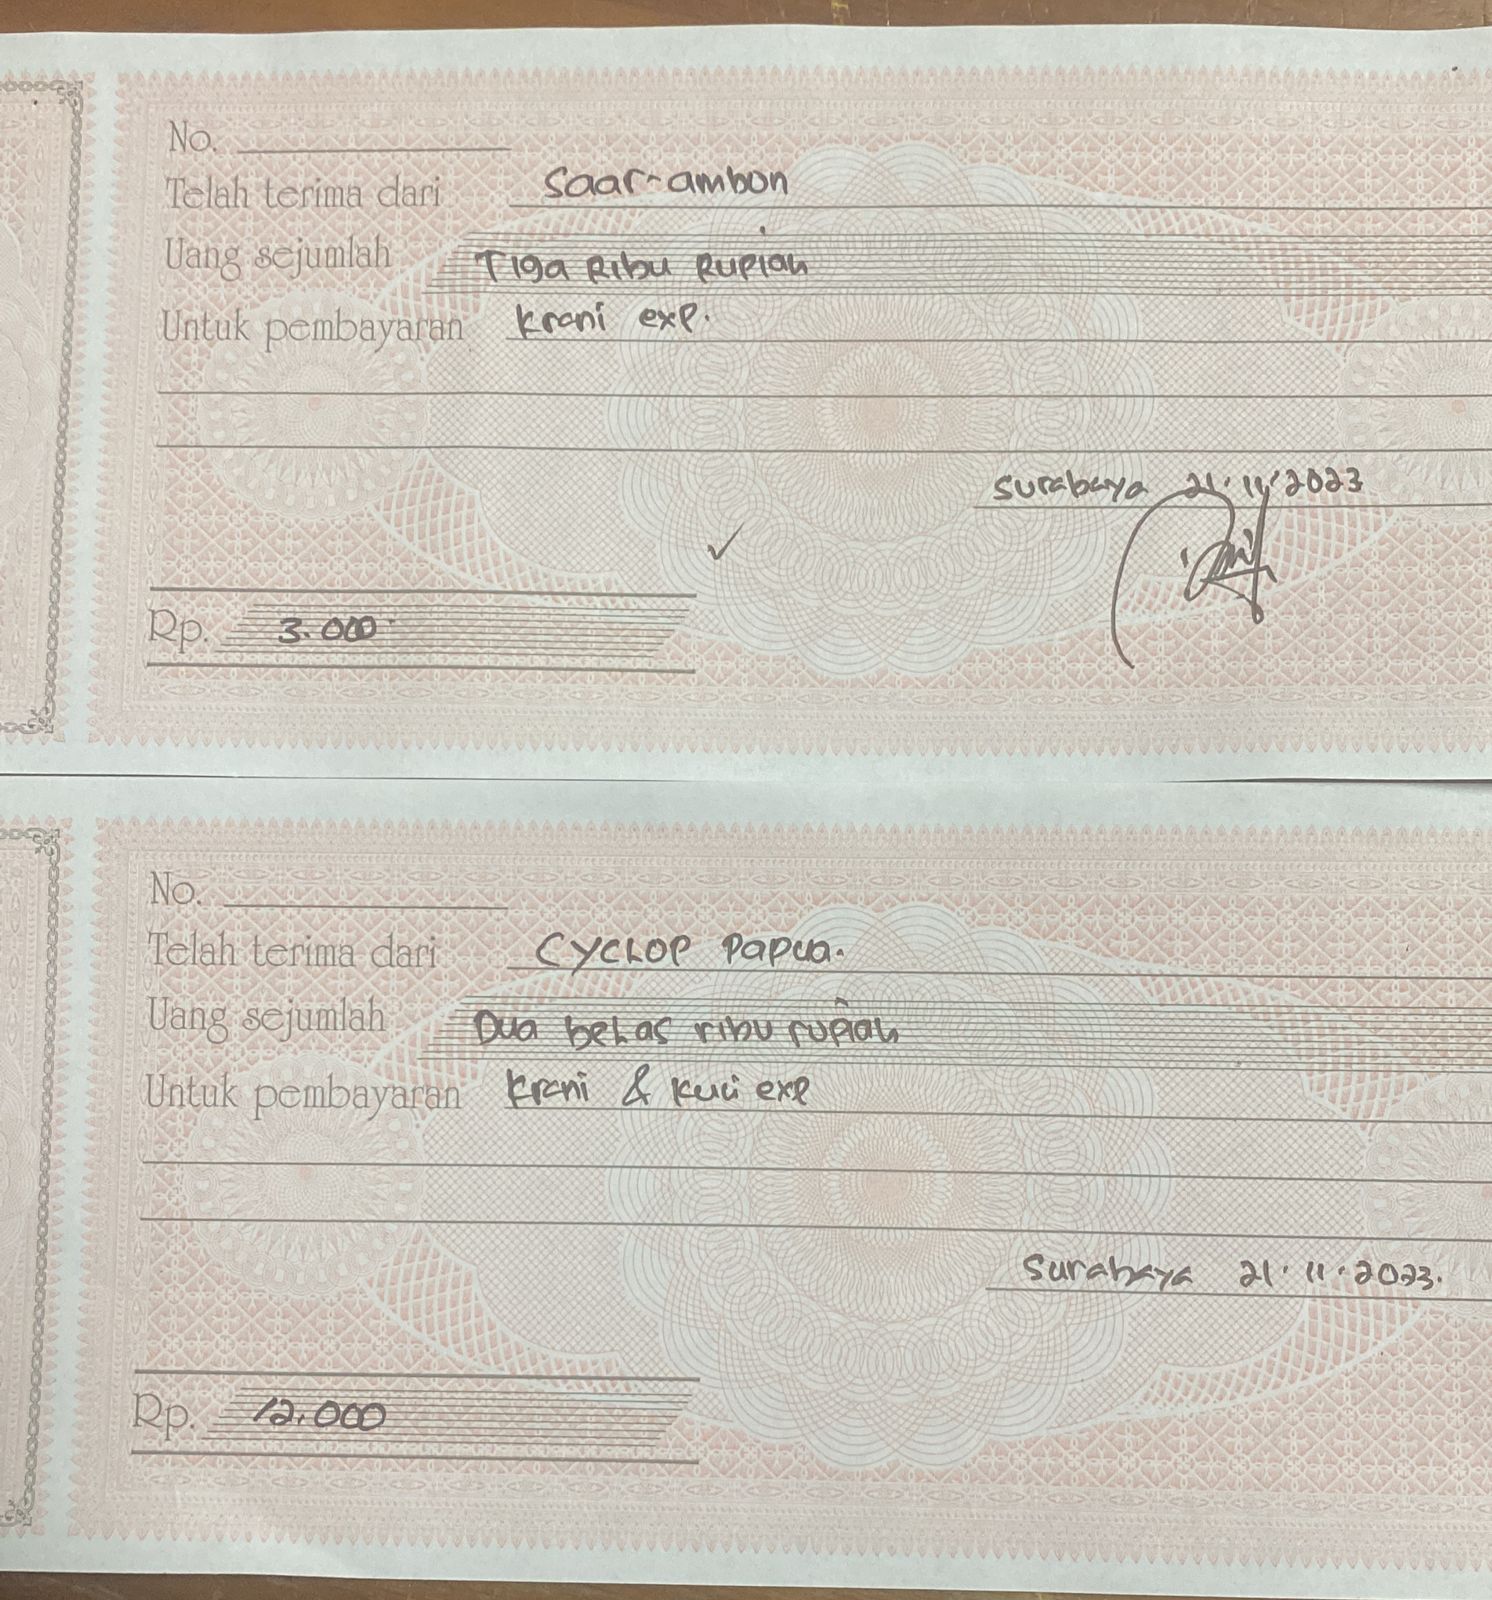 No.
Telah terima dari Saar-ambon
Uang sejumlah Tiga Ribu Rupiah
Untuk pembayaran krani exp.
Surabaya 21.11.2023
Rp. 3.000
No.
Telah terima dari CYCLOP Papua.
Uang sejumlah Dua belas ribu rupiah
Untuk pembayaran krani & kuci exp
Surabaya 21.11.2023.
Rp. 12.000